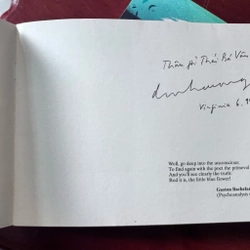 Thân gửi Thái Bá Vân
Virginia 6.9
Well, go deep into the unconscious;
To find again with the poet the primeval
And you'll see clearly the truth:
Red it is, the little blue flower!
Gaston Bachela
(Psychoanalysis